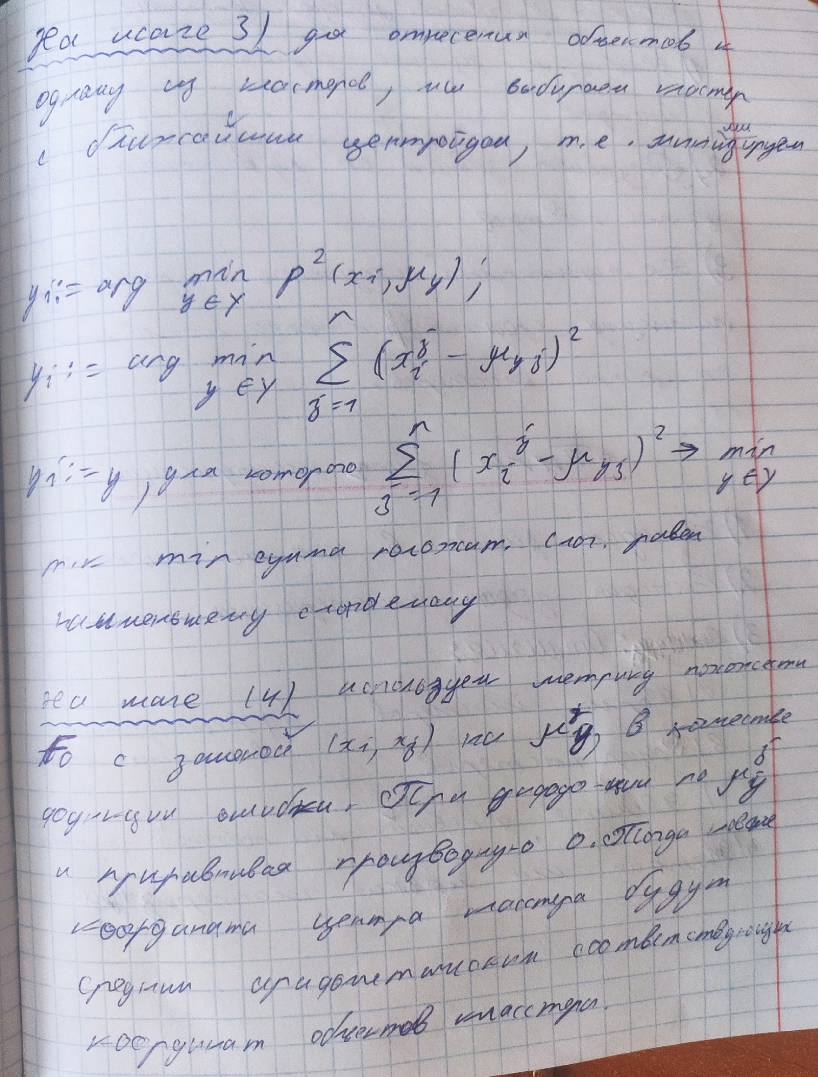 На шаге 3) для отнесения объектов к
одному из кластеров, мы выбираем кластер
с ближайшим центройдом, т.е. минимизируем
y_i := arg min_{y∈Y} ρ²(x_i, μ_y);
y_i := arg min_{y∈Y} Σ_{j=1}^{n} (x_i^j - μ_{yj})²
y_i := y, для которого Σ_{j=1}^{n} (x_i^j - μ_{yj})² → min_{y∈Y}
т.к min сумма положит. слаг. равен
наименьшему слагаемому
На шаге (4) используем метрику похожести
F_0 с заменой (x_i, x_j) на μ_y, в качестве
функции ошибки. При по μ_y^j
и приравнивая производную 0. Тогда новые
координаты центра класстера будут
средним арифметическим соответствующих
координат объектов класстера.